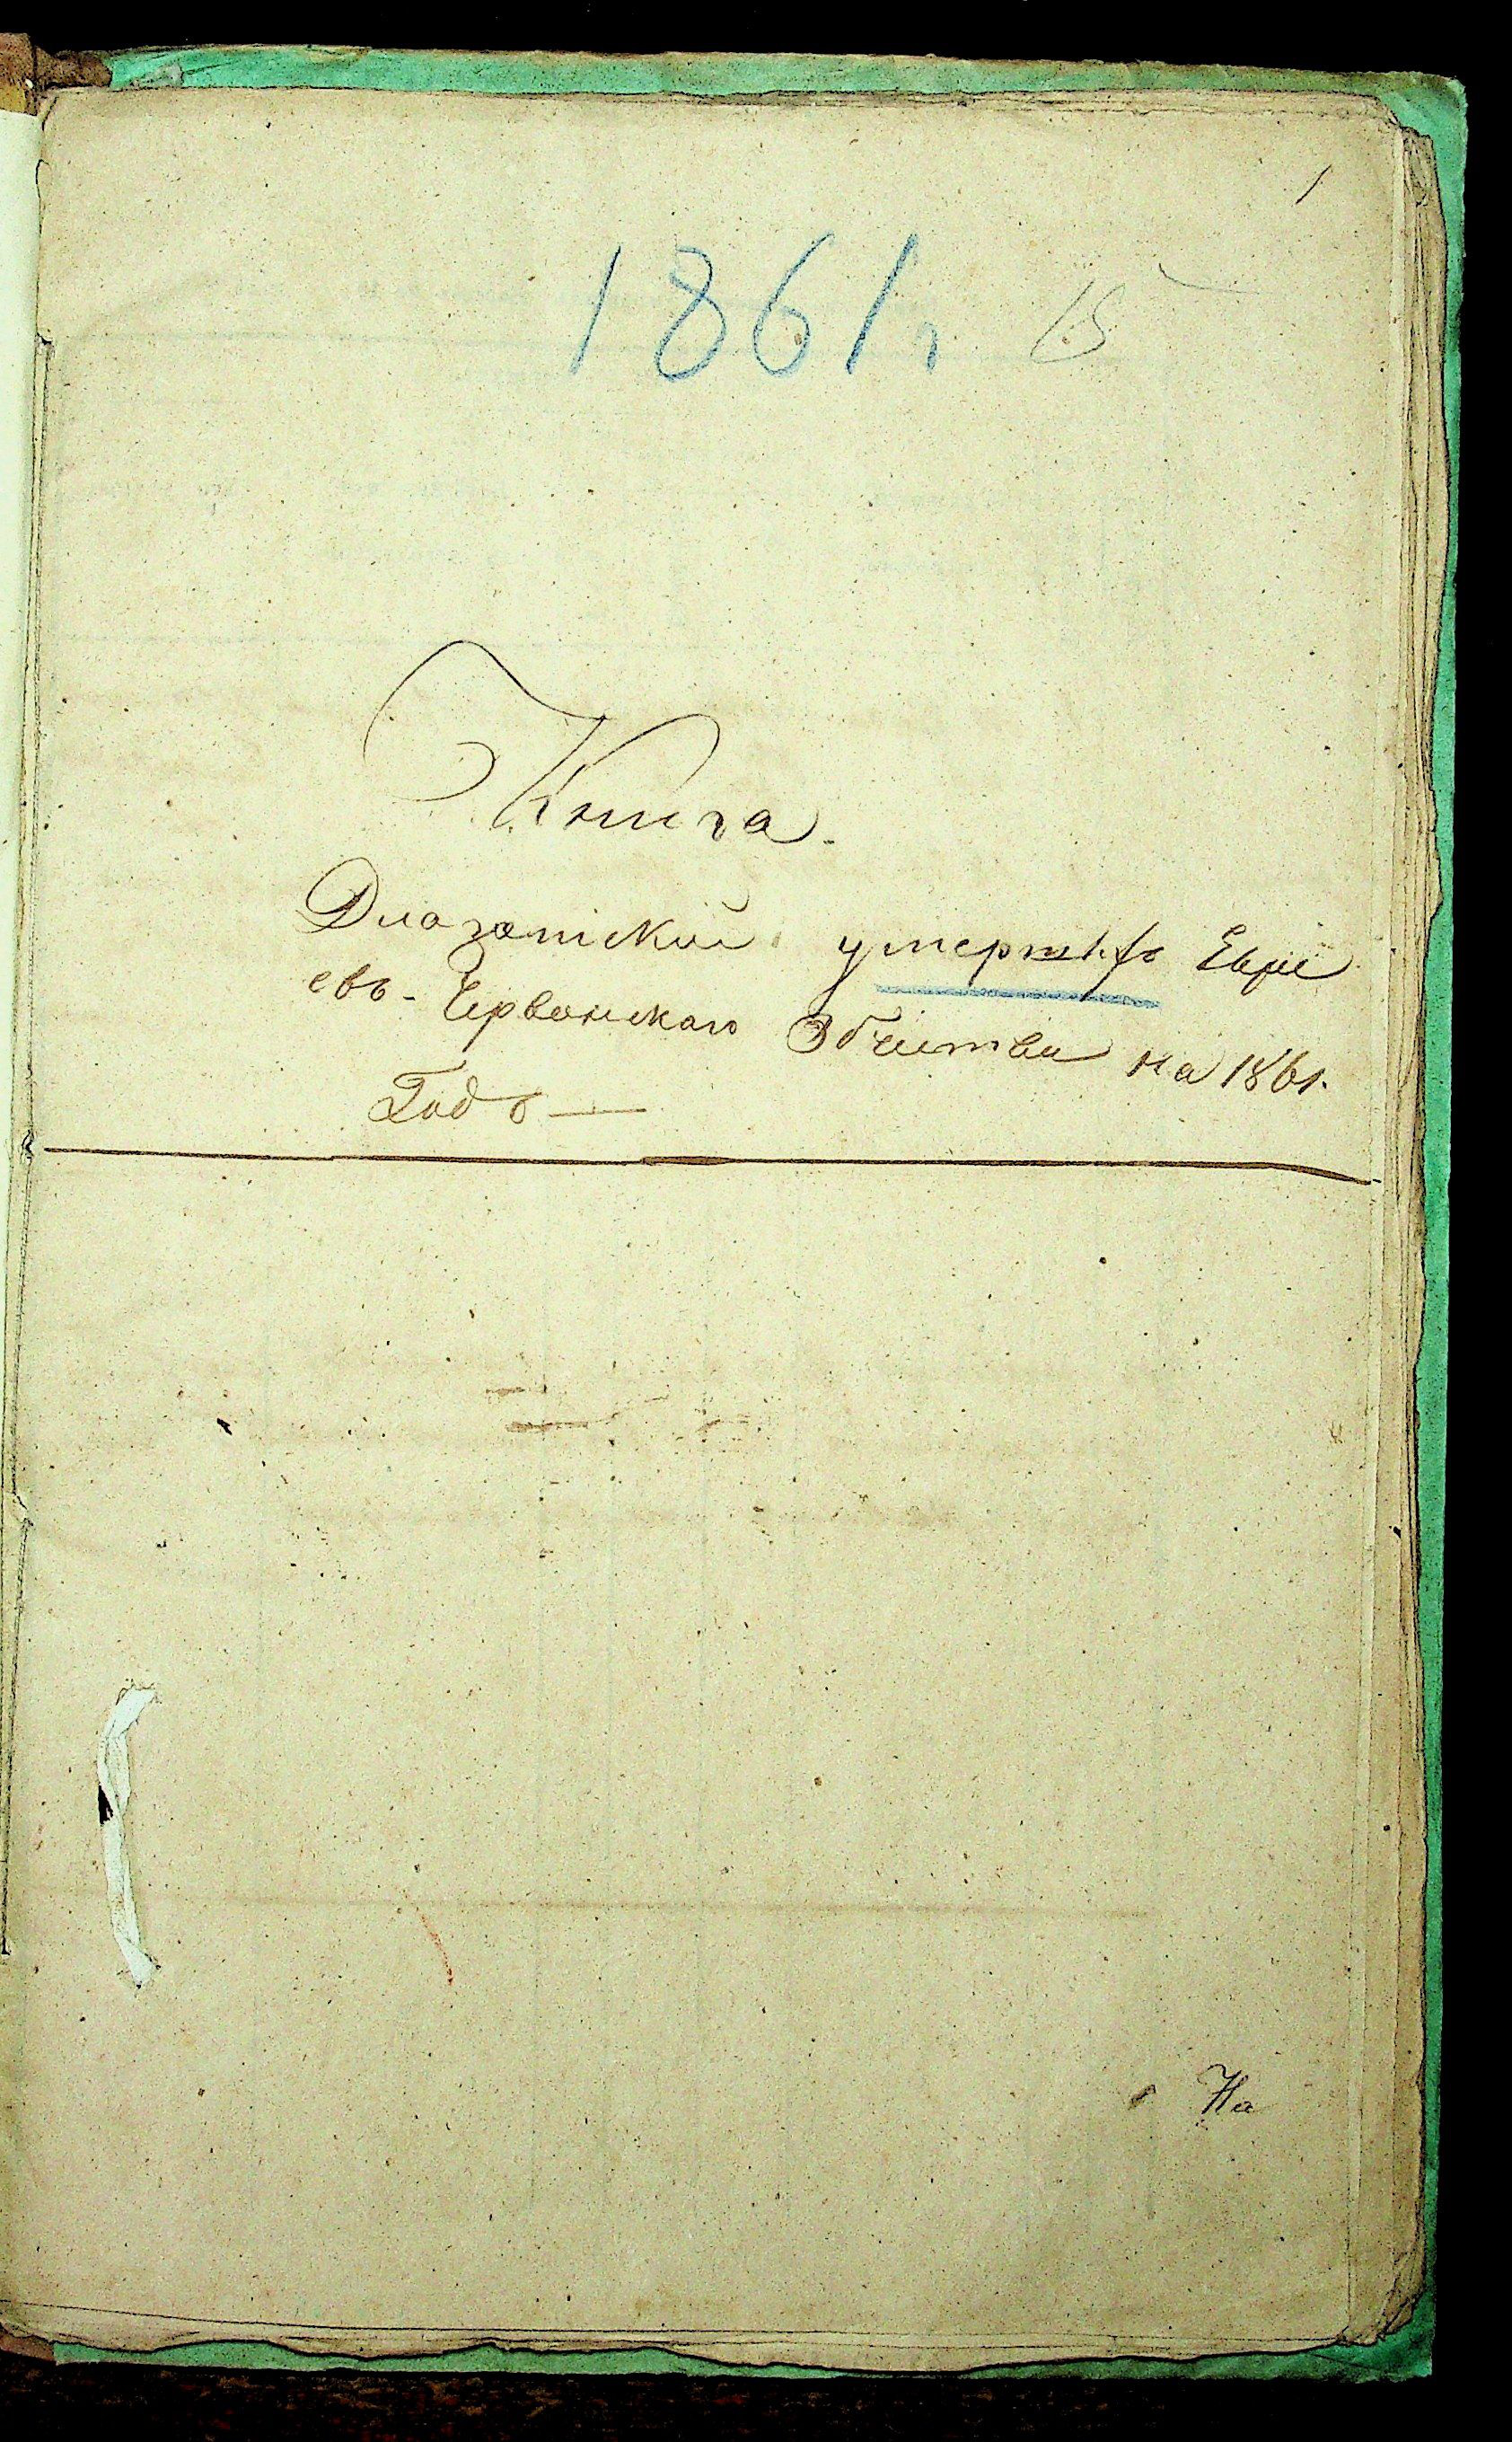 1
1861 г
15
Книга.
Для записки умершихъ Евре
евъ Червонскаго Обчества на 1861.
Годъ —
На